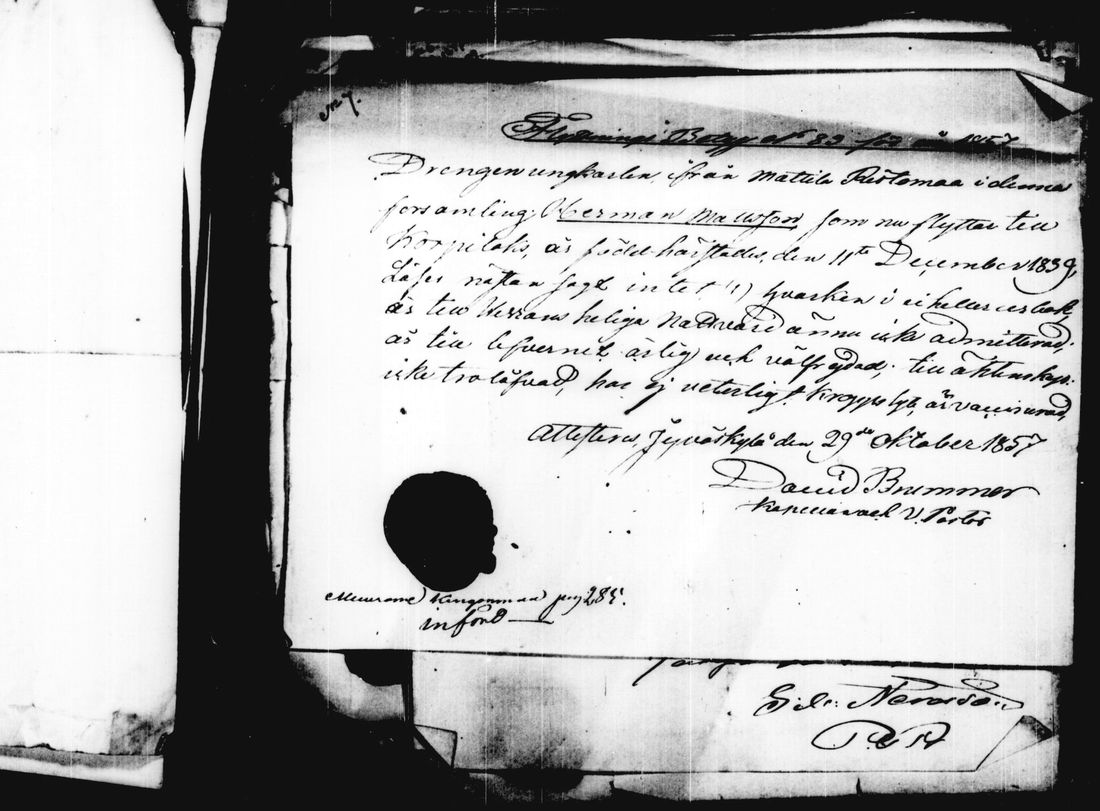 No 7.
Flyttnings Betyg No 83 för år 1857
Drengen ungkarlen, ifrån Mattila Ristomaa i denna
församling, Herman Mattsson, som nu flyttar till
Korpilaks, är född härstädes, den 11te December 1839,
Läser nästan sagt intet (!) hvarken i eller utur bok
är till Herrans heliga Nattvard ännu icke admitterad;
är till lefvernet ärlig och välfrejdad; till äktenskap
icke trolåfvad, har ej veterligt kroppslyte, är vaccinerad,
Attesteras, Jyväskylä den 29de Oktober 1857
David Brummer
Kapellan och V. Pastor
Muurame Kingenmaa pag 285.
införd